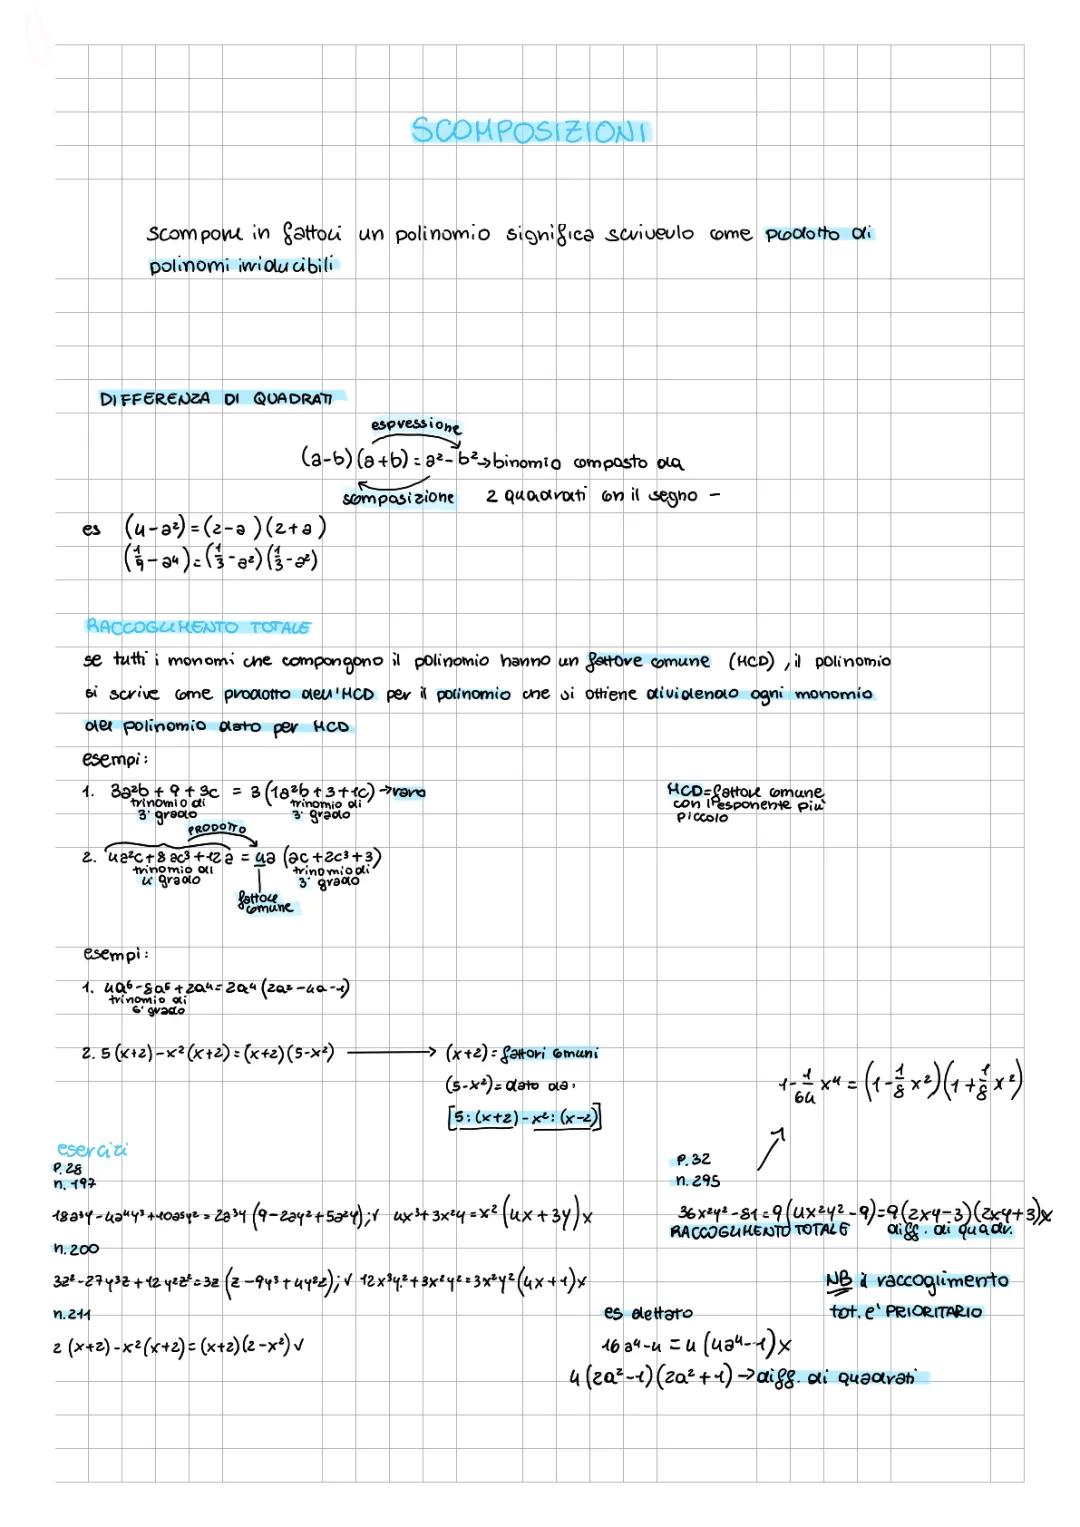 SCOMPOSIZIONI
Scomporre in fattori un polinomio significa scriverlo come prodotto di
polinomi irriducibili
DIFFERENZA DI QUADRATI
espressione
(a-b)(a+b) = a²-b² → binomio composto da
scomposizione 2 quadrati con il segno -
es (4-a²) = (2-a)(2+a)
(1/9-a⁴) = (1/3-a²)(1/3-a²)
RACCOGLIMENTO TOTALE
se tutti i monomi che compongono il polinomio hanno un fattore comune (MCD), il polinomio
si scrive come prodotto dell'MCD per il polinomio che si ottiene dividendo ogni monomio
del polinomio dato per MCD
esempi:
1. 3a²b + 9 + 3c = 3(1a²b + 3 + 1c) → raro
trinomio di 3° grado
trinomio di 3° grado
MCD = fattore comune
con l'esponente più
piccolo
PRODOTTO
2. 4a²c + 8ac³ + 12a = 4a (ac + 2c³ + 3)
trinomio di 4° grado
trinomio di 3° grado
fattore comune
esempi:
1. 4a⁶-8a⁵+2a⁴ = 2a⁴(2a²-4a-1)
trinomio di
6° grado
2. 5(x+2)-x²(x+2) = (x+2)(5-x²) → (x+2) = fattori comuni
(5-x²) = dato da:
[5:(x+2)-x²:(x-2)]
1-1/64 x⁴ = (1-1/8 x²)(1+1/8 x²)
esercizi
P. 28
n. 197
18a³y-4a⁴y³+10a⁵y² = 2a³y(9-2ay²+5a²y);√ 4x³+3x²y = x²(4x+3y)x
n. 200
3z²-27y³z+12y²z² = 3z(z-9y³+4y²z);√ 12x³y²+3x²y² = 3x²y²(4x+1)x
n. 211
2(x+2)-x²(x+2) = (x+2)(2-x²)√
P. 32
n. 295
36x²y²-81 = 9(4x²y²-9) = 9(2xy-3)(2xy+3)x
RACCOGLIMENTO TOTALE diff. di quadr.
NB il raccoglimento
tot. e' PRIORITARIO
es dettato
16a⁴-4 = 4(4a⁴-1)x
4(2a²-1)(2a²+1) → diff. di quadrati